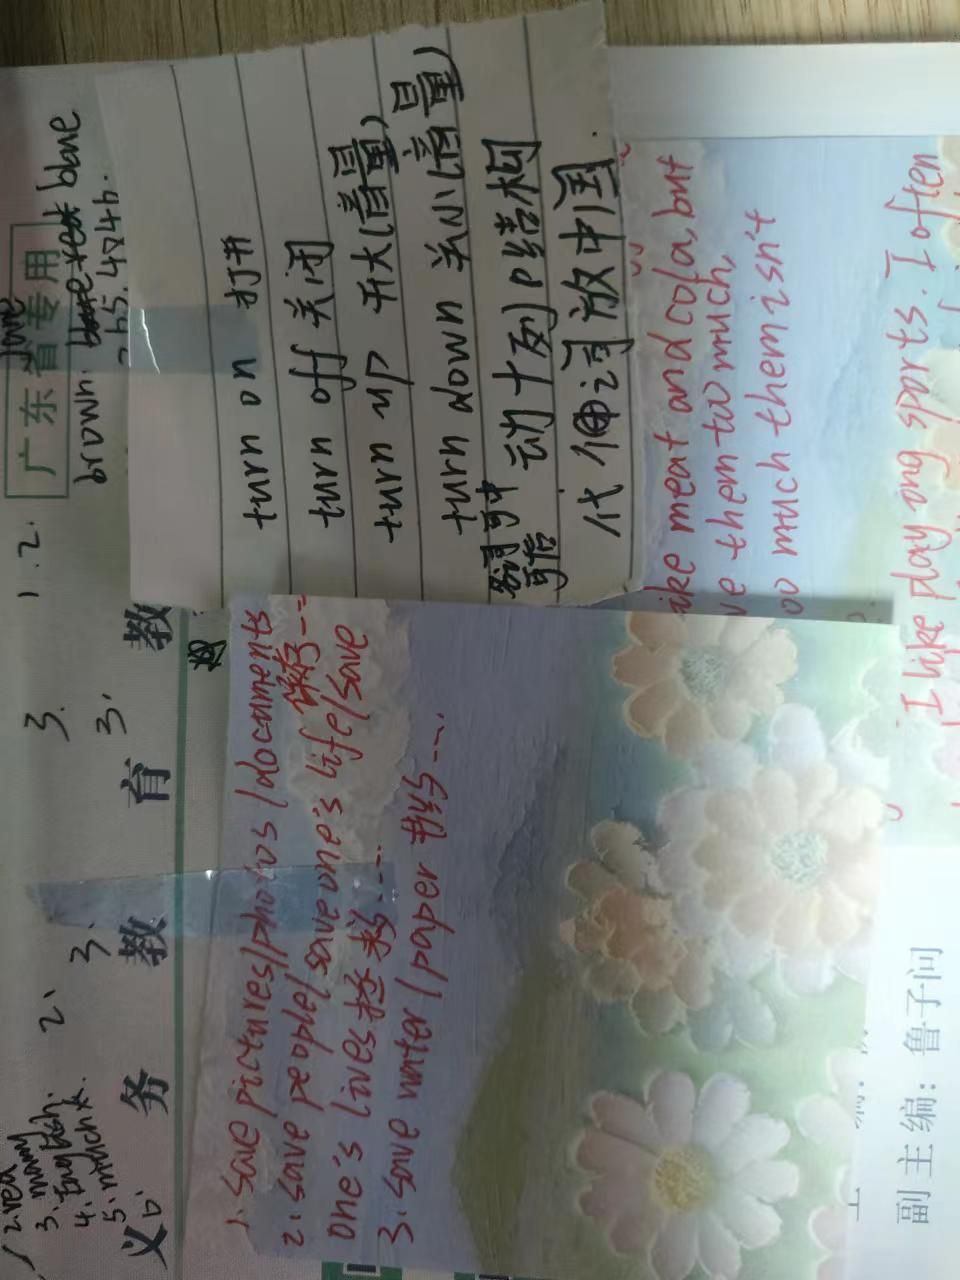 广东省专用
brown.
b5. 4040.
1. 2.
3.
3.
2. red
3. many
4. English.
5. much
2.
3.
义务教育教
turn on 打开
turn off 关闭
turn up 开大(音量)
turn down 关小(音量)
动+副结构
名词可中可后
代词放中间
1. save pictures/photos/documents 保存---
2. save people/save one's life/save
one's lives 拯救---
3. save water/paper 节约---
like meat and cola, but
them too much,
too much them isn't
I like playong sports. I often
副主编：鲁子问